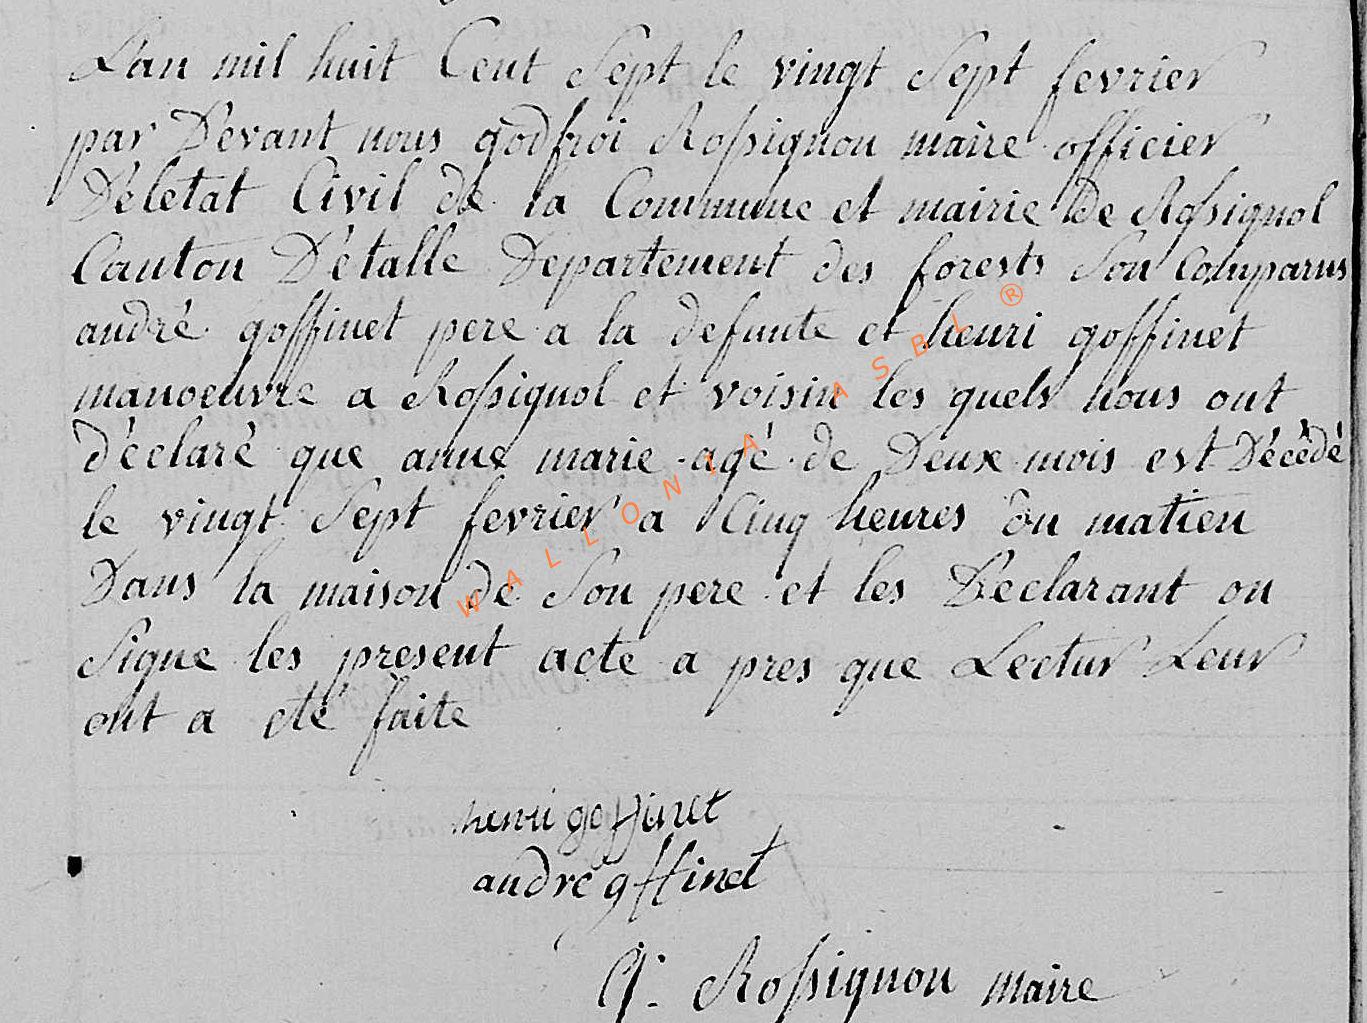 Lan mil huit Cent Sept le vingt Sept fevrier
par Devant nous godfroi Rossignon maire officier
Déletat Civil de la Commune et mairie de Rossignol
Canton D'étalle Departement des forests Son Comparus
andré goffinet pere a la defunte et henri goffinet
manoeuvre a Rossignol et voisin les quels nous ont
déclaré que anne marie agé de Deux mois est Décédé
le vingt Sept fevrier a Cinq heures du matien
Dans la maison de Son pere et les Declarant on
Signe les present acte a pres que Lectur Leur
ont a eté faite
henri goffinet
andre gffinet
G. Rossignon maire
WALLONIA ASBL ®